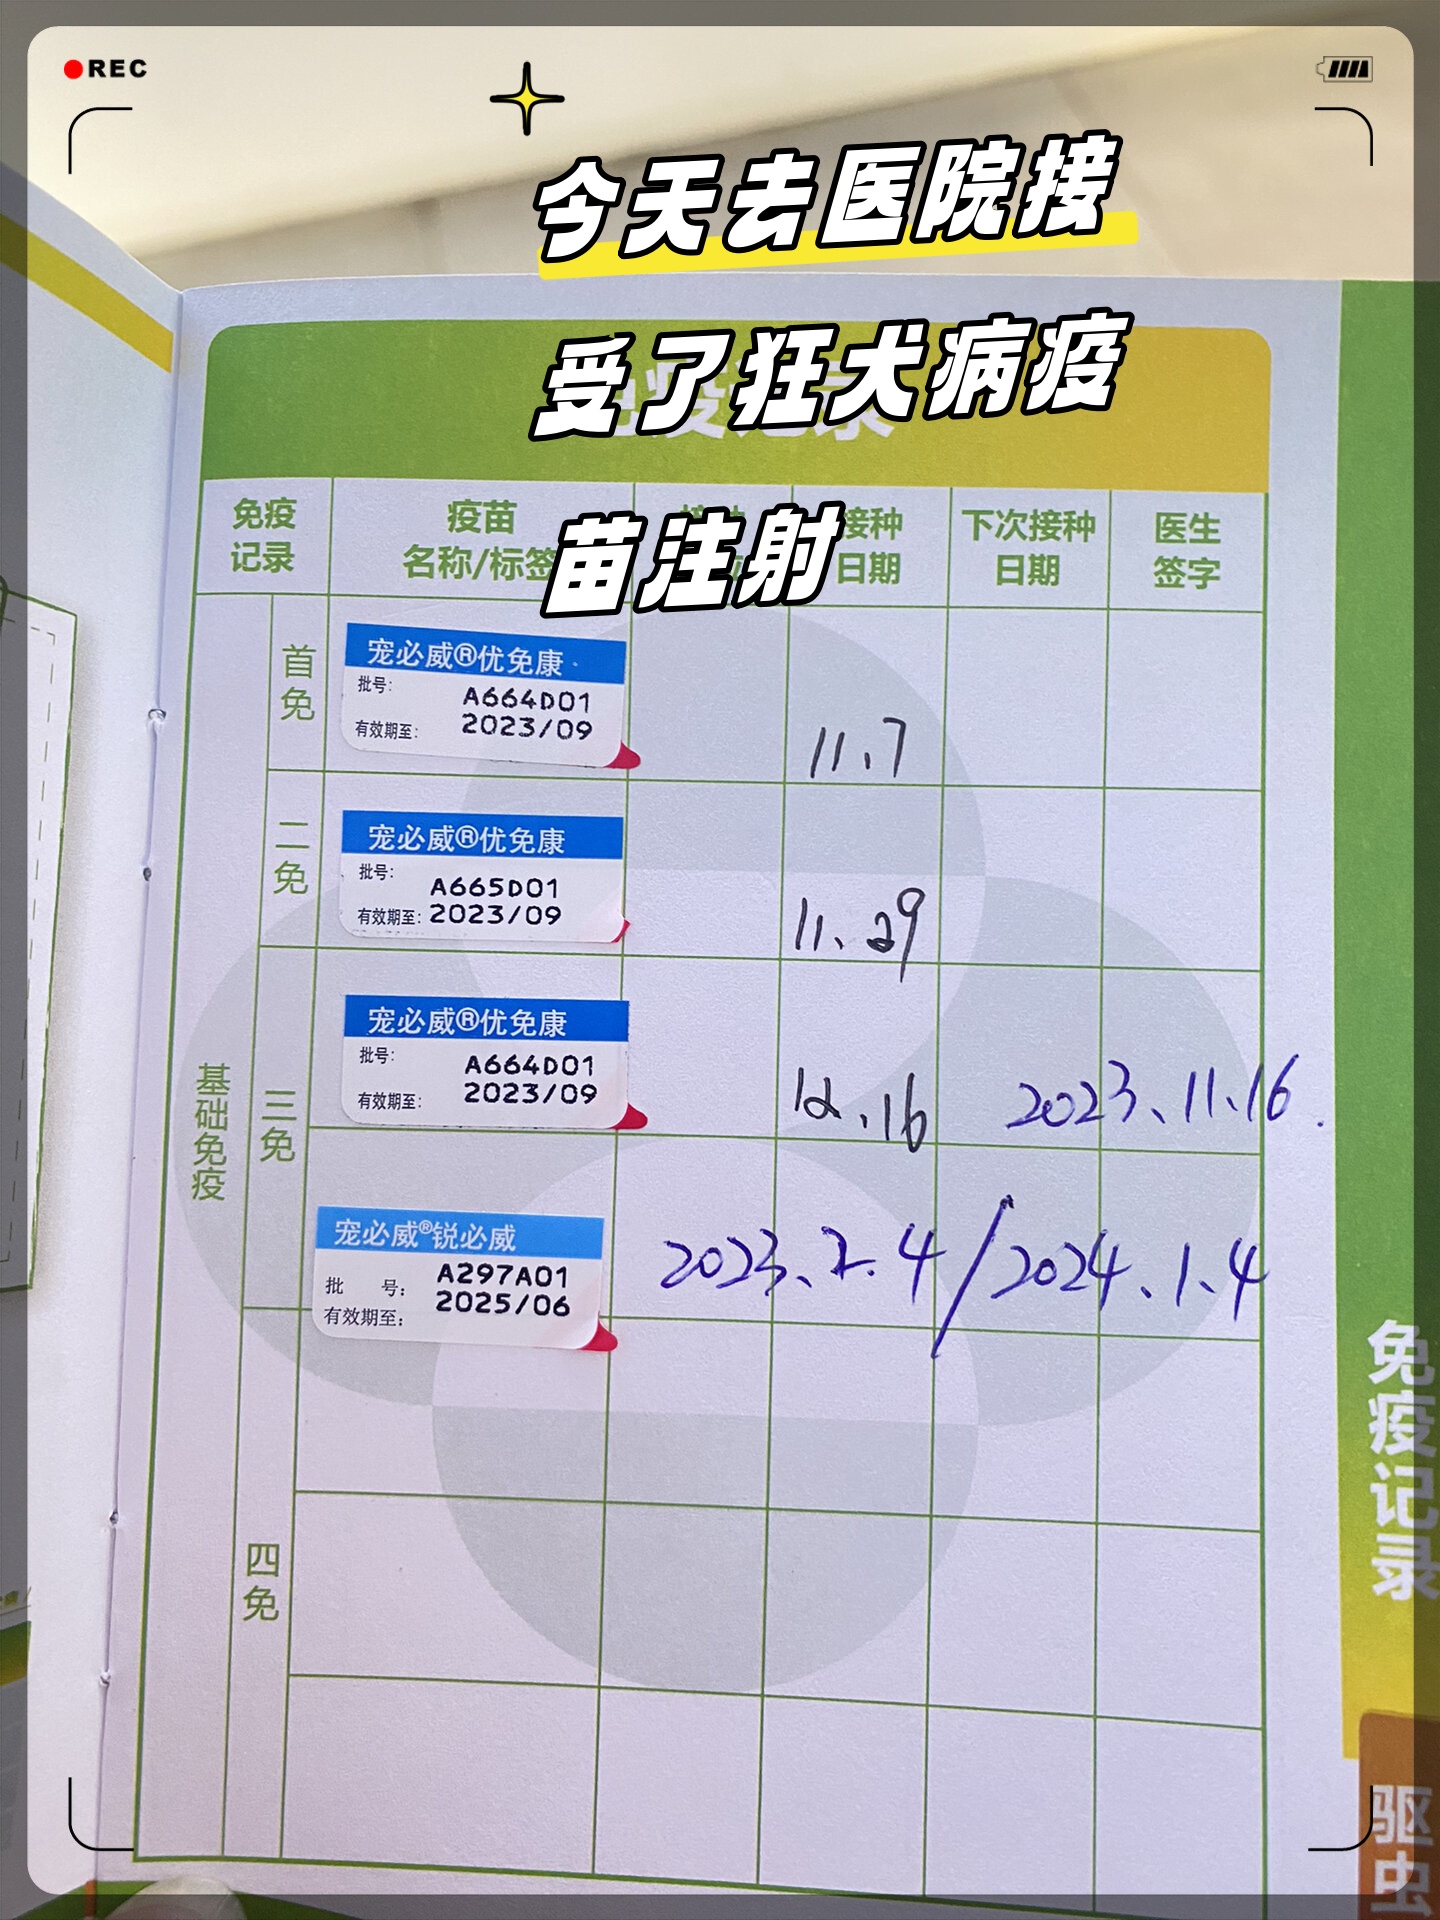 REC
今天去医院接
受了狂犬病疫
苗注射
免疫
记录
疫苗
名称/标签
接种
日期
下次接种
日期
医生
签字
基础免疫
首免
宠必威®优免康
批号:
A664D01
有效期至:
2023/09
11.7
二免
宠必威®优免康
批号:
A665D01
有效期至:
2023/09
11.29
三免
宠必威®优免康
批号:
A664D01
有效期至:
2023/09
12.16
2023.11.16.
宠必威®锐必威
批 号:
A297A01
有效期至:
2025/06
2024.1.4
四免
免疫记录
驱虫